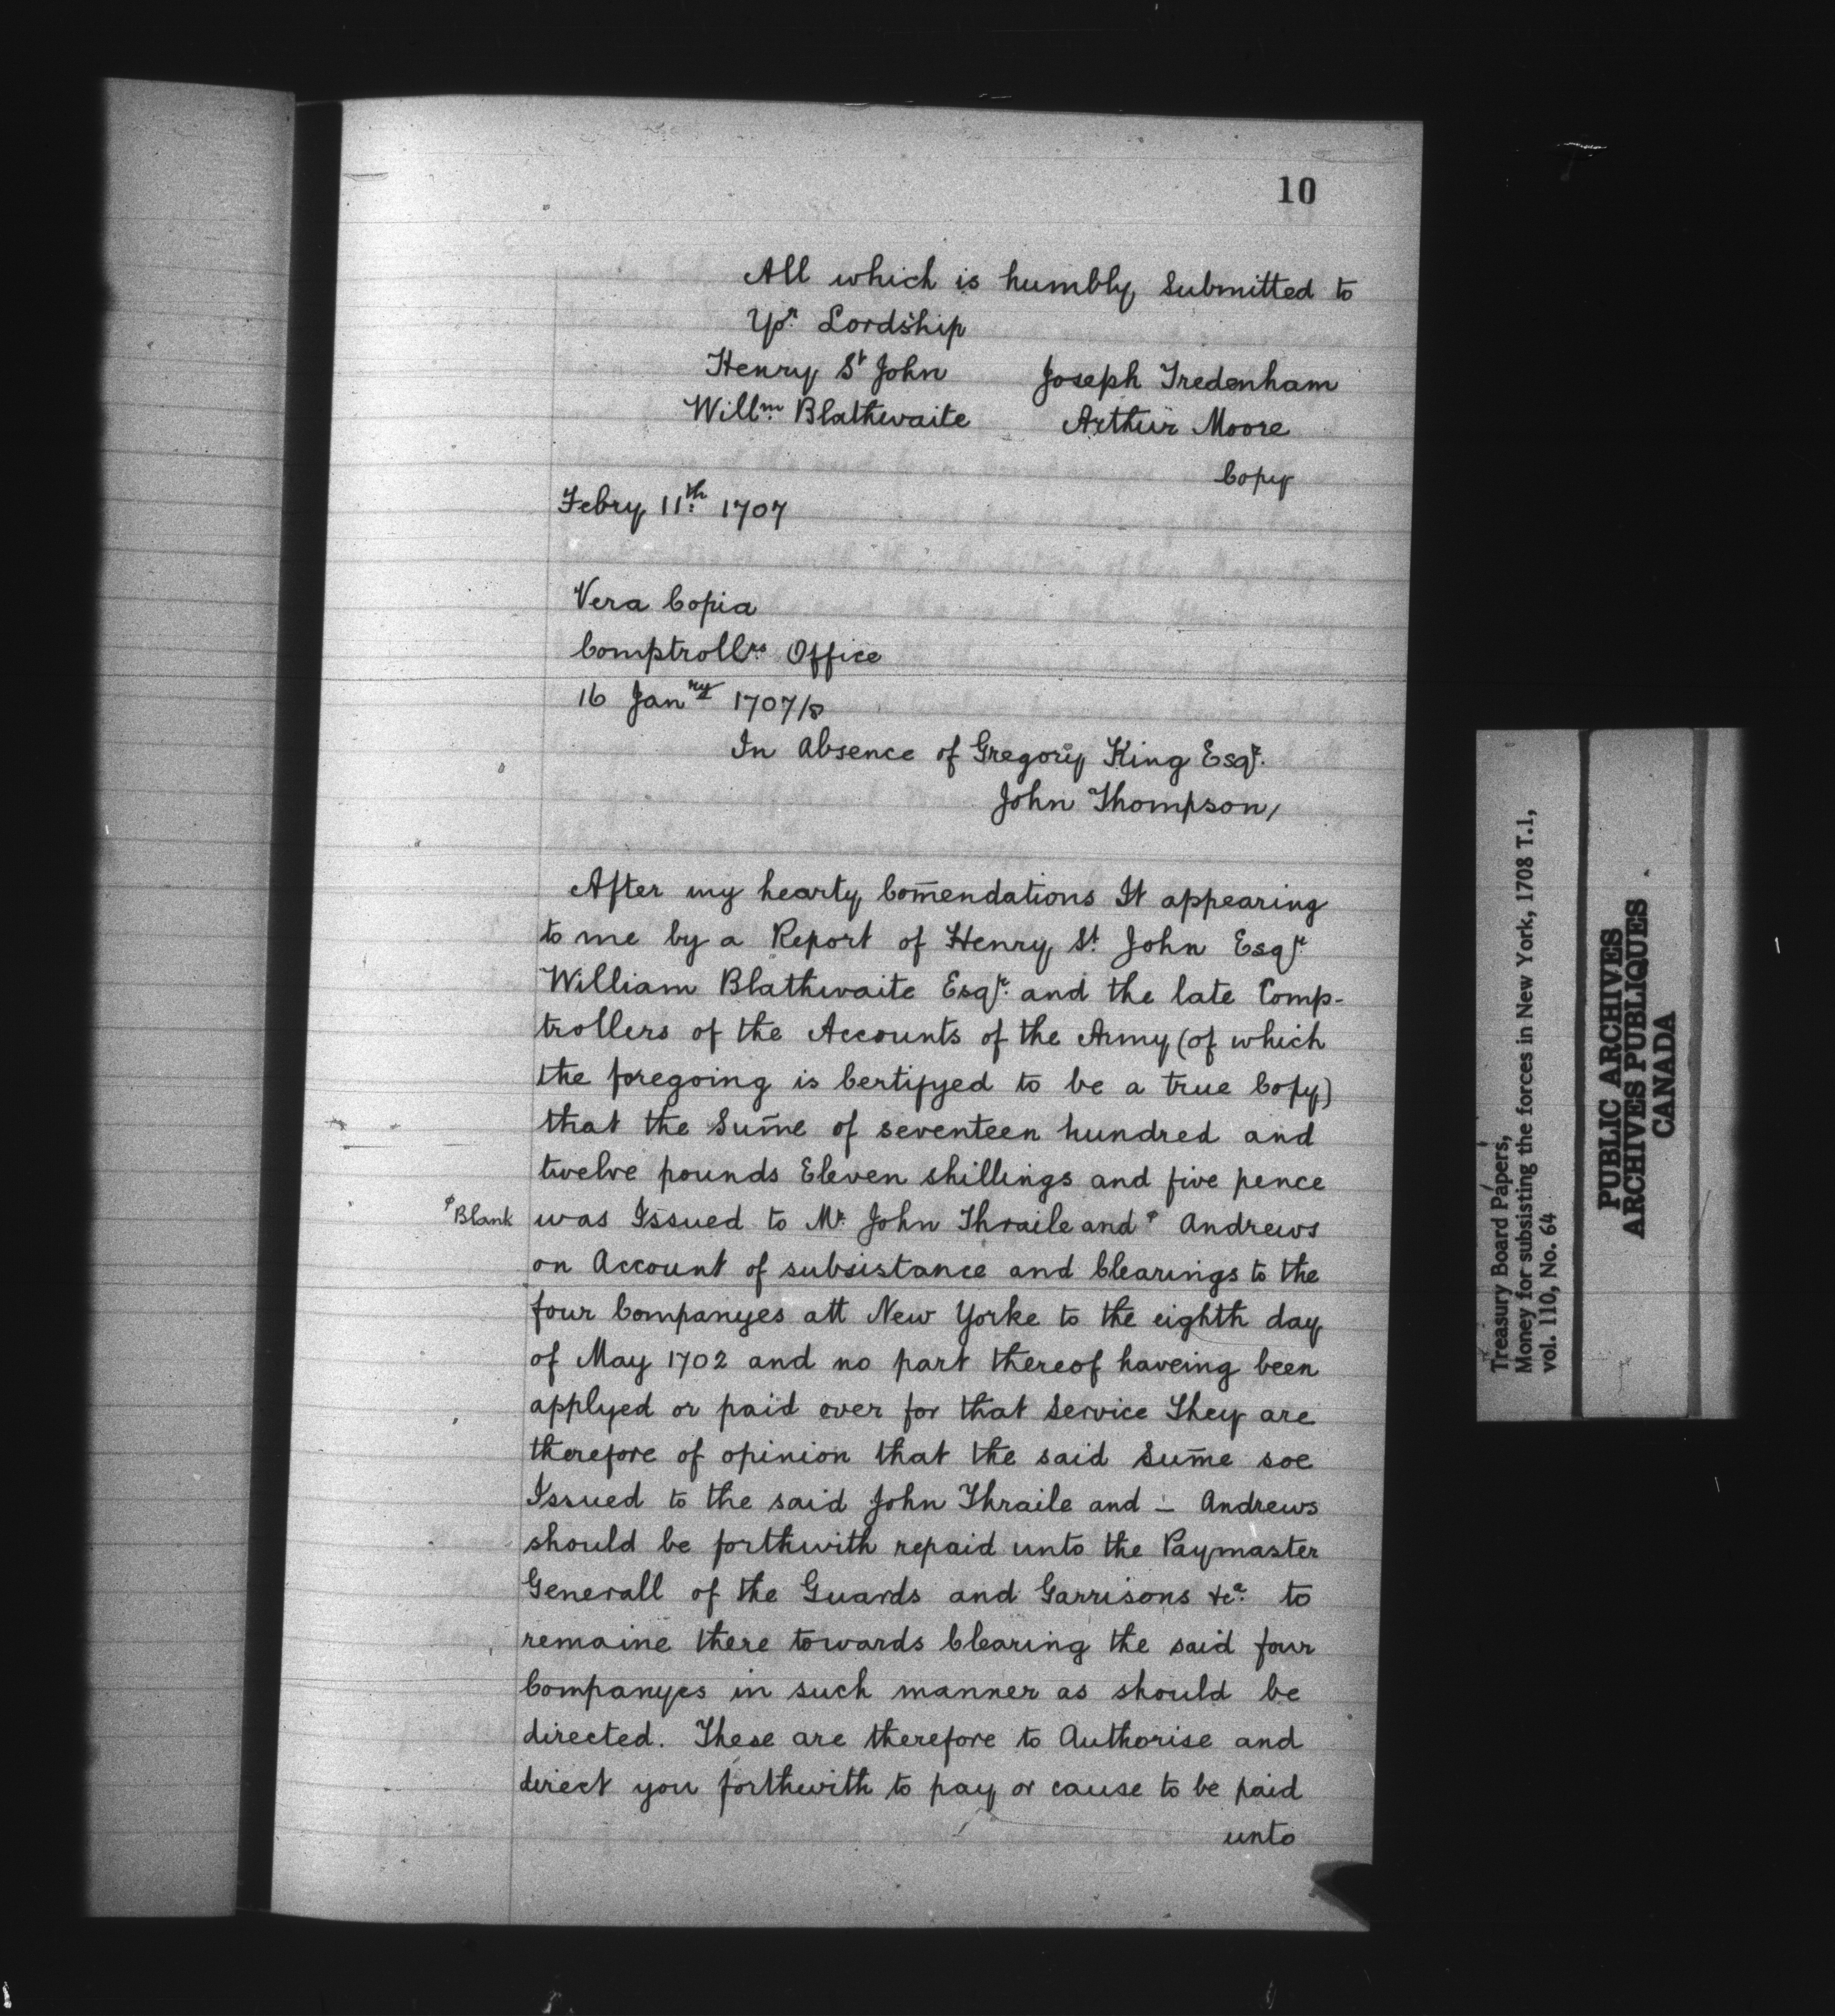 10
All which is humbly Submitted to
Yoʳ. Lordship
Henry Sᵗ John Joseph Tredenham
Willᵐ. Blathwaite Arthur Moore
Copy
Febry 11ᵗʰ. 1707
Vera Copia
Comptrollʳˢ. Office
16 Janʳʸ 1707/8
In Absence of Gregory King Esqʳ.
John Thompson,
After my hearty Com̄endations It appearing
to me by a Report of Henry Sᵗ. John Esqʳ.
William Blathwaite Esqʳ. and the late Comp-
trollers of the Accounts of the Army (of which
the foregoing is Certifyed to be a true Copy)
that the Sum̄e of seventeen hundred and
twelve pounds Eleven shillings and five pence
ᵠBlank was Issued to Mʳ. John Thraile and ᵠ Andrews
on Account of subsistance and Clearings to the
four Companyes att New Yorke to the eighth day
of May 1702 and no part thereof haveing been
applyed or paid over for that Service They are
therefore of opinion that the said Sum̄e soe
Issued to the said John Thraile and _ Andrews
should be forthwith repaid unto the Paymaster
Generall of the Guards and Garrisons &cᵃ. to
remaine there towards Clearing the said four
Companyes in such manner as should be
directed. These are therefore to Authorise and
direct you forthwith to pay or cause to be paid
unto
Treasury Board Papers,
Money for subsisting the forces in New York, 1708 T.1,
vol. 110, No. 64
PUBLIC ARCHIVES
ARCHIVES PUBLIQUES
CANADA